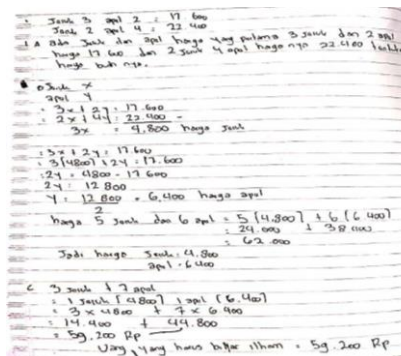 Jeruk 3 apel 2 = 17.600
Jeruk 2 apel 4 = 22.400
1. A ada Jeruk dan apel harga yang pertama 3 Jeruk dan 2 apel
harga 17.600 dan 2 Jeruk 4 apel harga nya 22.400
harga buah nya.
Jeruk x
apel y
= 3x + 2y = 17.600
= 2x + 4y = 22.400 -
3x = 4.800 harga Jeruk
= 3x + 2y = 17.600
= 3(4800) + 2y = 17.600
= 2y = 4800 - 17.600
2y = 12 800
y = 12 800 = 6.400 harga apel
2
harga 5 Jeruk dan 6 apel = 5 (4.800) + 6 (6.400)
= 24.000 + 38.000
= 62.000
Jadi harga Jeruk = 4.800
apel = 6.400
C 3 Jeruk + 7 apel
= 1 Jeruk (4800) 1 apel (6.400)
= 3 x 4800 + 7 x 6.400
= 14.400 + 44.800
= 59.200 Rp
Uang yang harus bayar ilham = 59.200 Rp